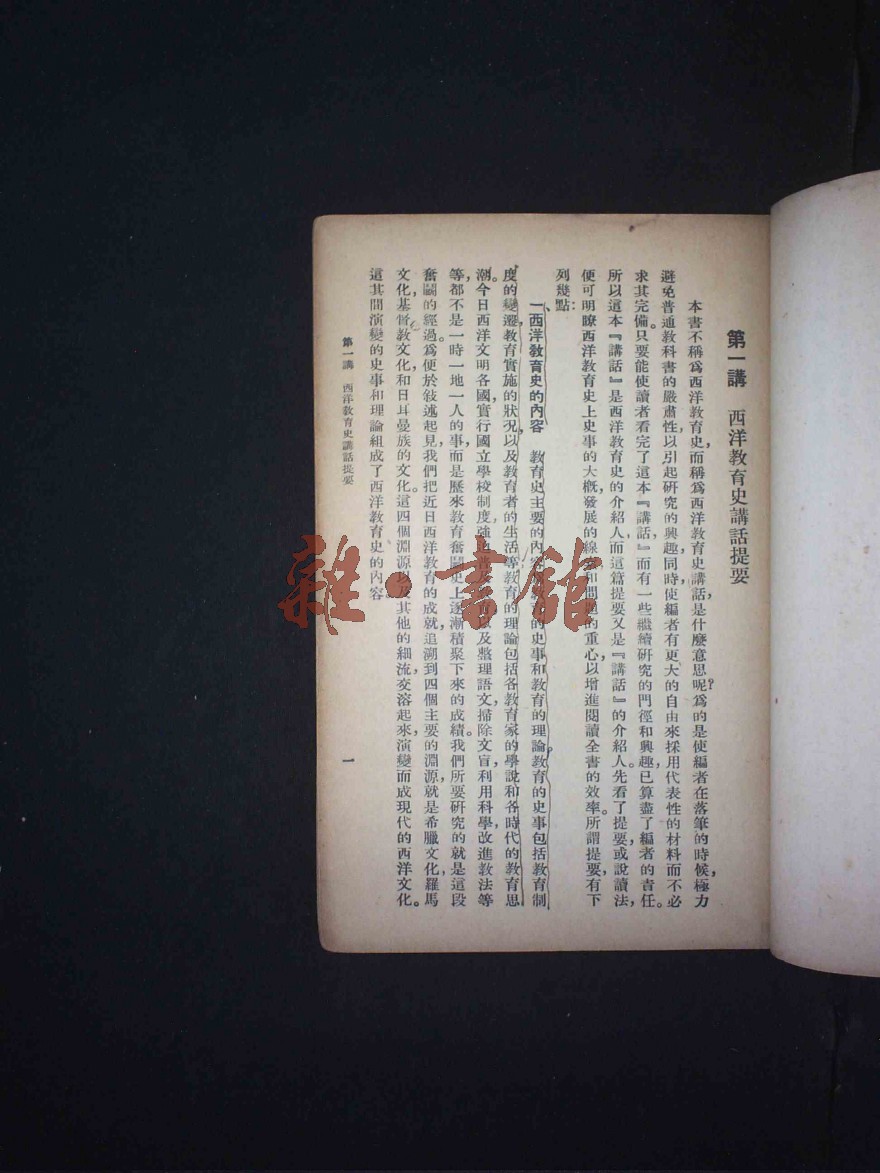 第一講　西洋教育史講話提要
本書不稱爲西洋教育史，而稱爲西洋教育史講話，是什麼意思呢？爲的是使編者在落筆的時候，極力
避免普通教科書的嚴肅性，以引起研究的興趣，同時，使編者有更大的自由來採用代表性的材料而不必
求其完備。只要能使讀者看完了這本『講話』而有一些繼續研究的門徑和興趣，已算盡了編者的責任。
所以這本『講話』是西洋教育史的介紹人，而這篇提要又是『講話』的介紹人。先看了提要，或說讀法，
便可明瞭西洋教育史上史事的大概，發展的線索和問題的重心，以增進閱讀全書的效率。所謂提要，有下
列幾點：
一、西洋教育史的內容　教育史主要的內容是教育的史事和教育的理論。教育的史事包括教育制
度的變遷，教育實施的狀況，以及教育者的生活等，教育的理論包括各教育家的學說和各時代的教育思
潮。今日西洋文明各國，實行國立學校制度，強迫普及教育，以及整理語文，掃除文盲，利用科學，改進教法等
等，都不是一時一地一人的事，而是歷來教育奮鬭史上逐漸積聚下來的成績。我們所要研究的就是這段
奮鬭的經過。爲便於敍述起見，我們把近日西洋教育的成就，追溯到四個主要的淵源，就是希臘文化，羅馬
文化，基督教文化，和日耳曼族的文化。這四個淵源以及其他的細流，交溶起來，演變而成現代的西洋文化。
這其間演變的史事和理論組成了西洋教育史的內容。
第一講　西洋教育史講話提要
一
雜·書館